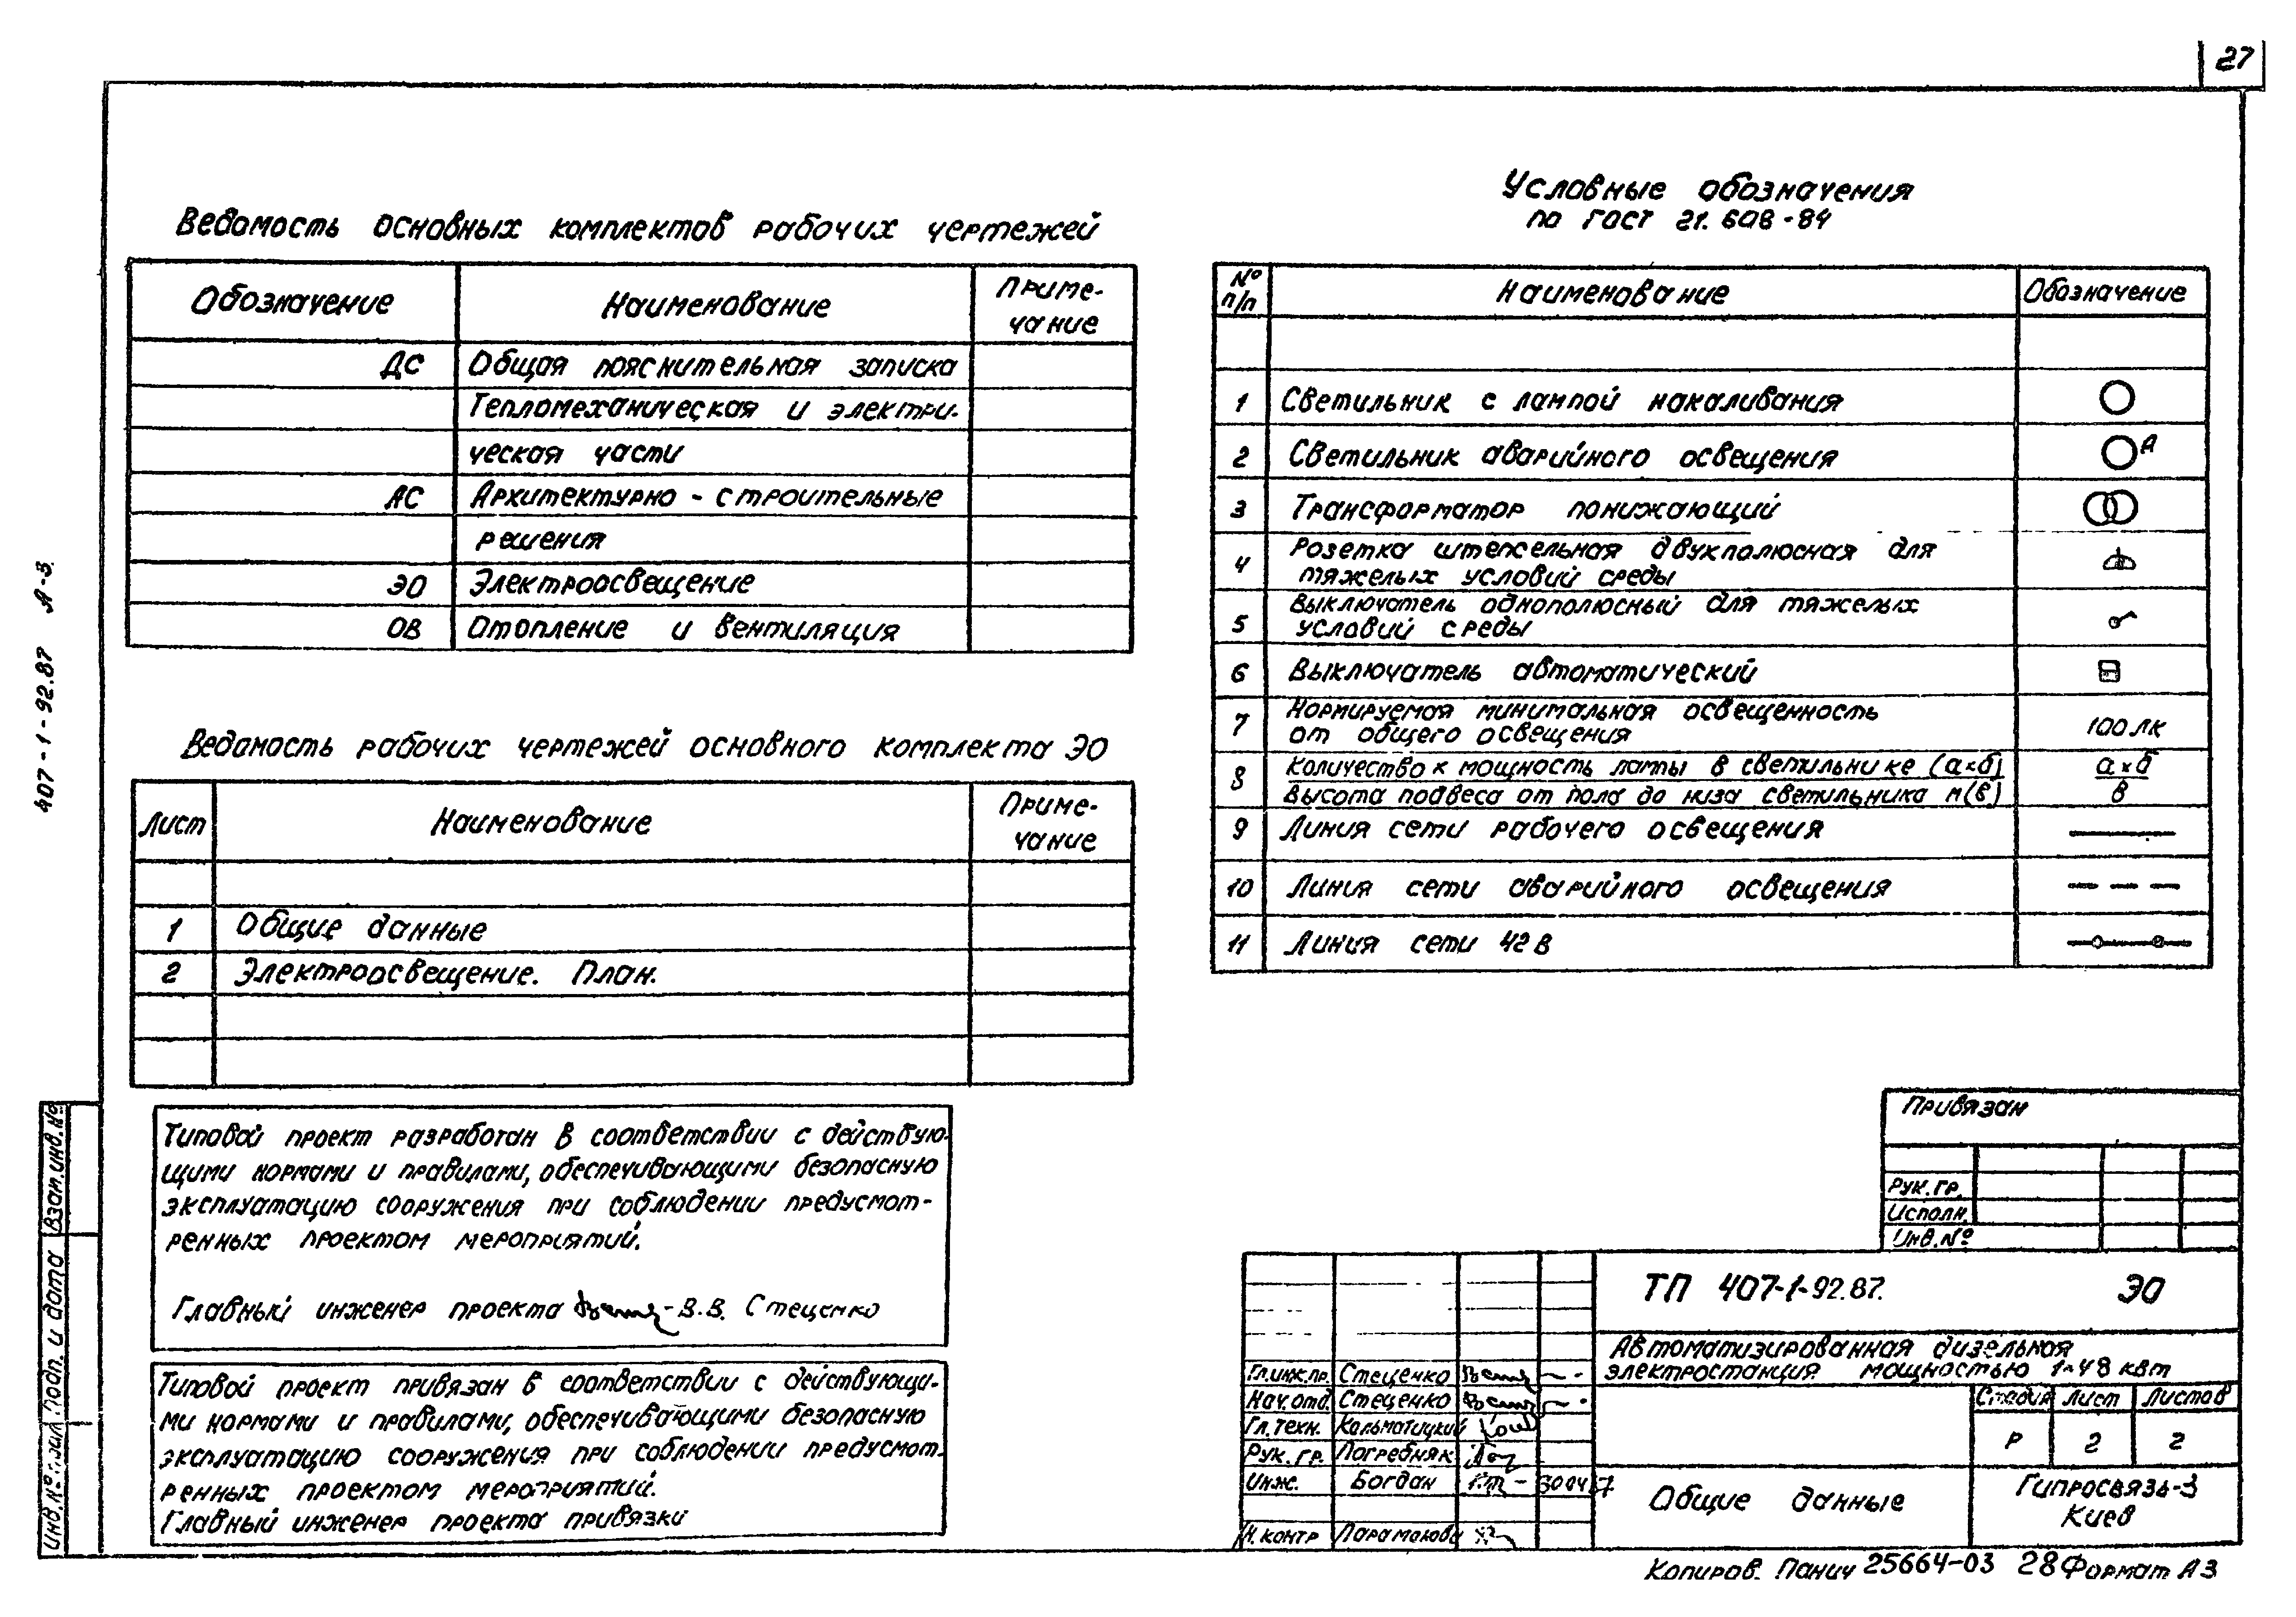 27
Ведомость основных комплектов рабочих чертежей
Обозначение Наименование Приме-
чание
ДС Общая пояснительная записка
Тепломеханическая и электри-
ческая части
АС Архитектурно - строительные
решения
ЭО Электроосвещение
ОВ Отопление и вентиляция
Ведомость рабочих чертежей основного комплекта ЭО
Лист Наименование Приме-
чание
1 Общие данные
2 Электроосвещение. План.
Типовой проект разработан в соответствии с действую-
щими нормами и правилами, обеспечивающими безопасную
эксплуатацию сооружения при соблюдении предусмот-
ренных проектом мероприятий.
Главный инженер проекта В.В. Стеценко
Типовой проект привязан в соответствии с действующи-
ми нормами и правилами, обеспечивающими безопасную
эксплуатацию сооружения при соблюдении предусмот-
ренных проектом мероприятий.
Главный инженер проекта привязки
Условные обозначения
по ГОСТ 21.608-84
№
п/п Наименование Обозначение
1 Светильник с лампой накаливания
2 Светильник аварийного освещения А
3 Трансформатор понижающий
4 Розетка штепсельная двухполюсная для
тяжелых условий среды
5 Выключатель однополюсный для тяжелых
условий среды
6 Выключатель автоматический
7 Нормируемая минимальная освещенность
от общего освещения 100 лк
8 Количество х мощность лампы в светильнике (а×б) а×б
Высота подвеса от пола до низа светильника м(в) в
9 Линия сети рабочего освещения
10 Линия сети аварийного освещения
11 Линия сети 42 в
Привязан
Рук.гр.
Исполн.
Инв.№
ТП 407-1-92.87. ЭО
Автоматизированная дизельная
электростанция мощностью 1×48 квт
Стадия Лист Листов
Р 2 2
Общие данные
Гипросвязь-3
Киев
Гл.инж.пр. Стеценко
Нач.отд. Стеценко
Гл.техн. Кальматицкий
Рук. гр. Погребняк
Инж. Богдан
Н.контр
Копиров. Панич 25664-03 28 Формат А3
407-1-92.87 А-3.
Взам.инв.№
Подп. и дата
Инв.№ подл.